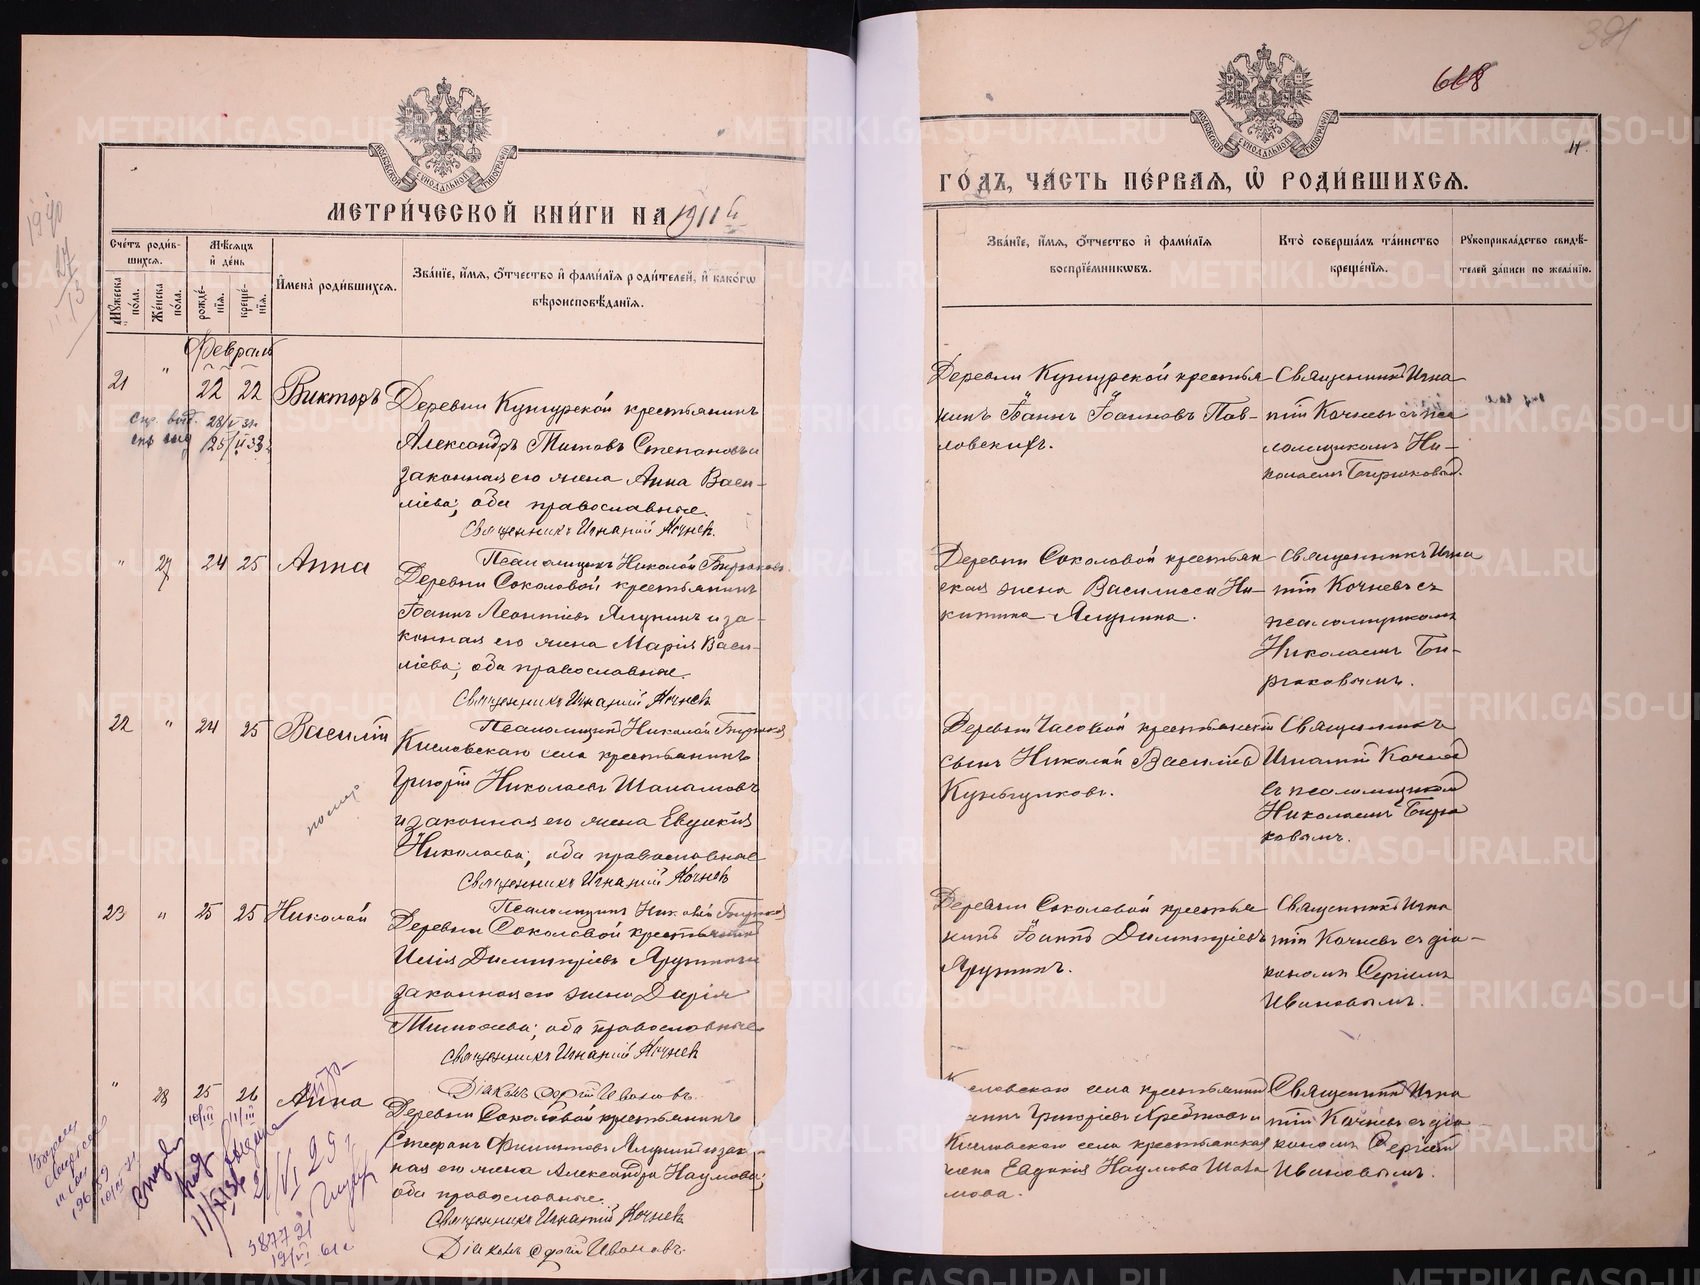 391
668
11.
МОСКОВСКОЙ СѴНОДАЛЬНОЙ ТИПОГРАФІИ
МЕТРИ́ЧЕСКОЙ КНИ́ГИ НА 1911й
Сче́тъ роди́в-
шихся.
Мѣ́сяцъ
и҆ де́нь
Му́жеска
по́ла.
Же́нска
по́ла.
рожде́-
нїѧ.
креще́-
нїѧ.
И҆мена̀ роди́вшихсѧ.
Зва́нїе, и҆́мѧ, ѻ҆́тчество и҆ фами́лїѧ роди́телей, и҆ како́гѡ
вѣроисповѣ́данїѧ.
Февраль
21 " 22 22 Викторъ
Деревни Кунгурской крестьянинъ
Александръ Титовъ Степановъ и
законная его жена Анна Васи-
ліева; оба православные.
Священникъ Игнатій Кочневъ
Псаломщикъ Николай Бирюковъ.
" 27 24 25 Анна
Деревни Соколовой крестьянинъ
Іоаннъ Леонтіевъ Ялунинъ и за-
конная его жена Марія Васи-
ліева; оба православные.
Священникъ Игнатій Кочневъ
Псаломщикъ Николай Бирюковъ
22 " 24 25 Василій
Кисловскаго села крестьянинъ
Григорій Николаевъ Шаламовъ
и законная его жена Евдокія
Николаева; оба православные
Священникъ Игнатій Кочневъ
Псаломщикъ Николай Бирюковъ
помер
23 " 25 25 Николай
Деревни Соколовой крестьянинъ
Илія Димитріевъ Ярушинъ и
законная его жена Дарія
Тимоѳеева; оба православные
Священникъ Игнатій Кочневъ
Діаконъ Сергій Ивановъ.
" 28 25 26 Анна
Деревни Соколовой крестьянинъ
Стефанъ Филипповъ Ялунинъ и закон-
ная его жена Александра Наумова;
оба православные.
Священникъ Игнатій Кочневъ
Діаконъ Сергій Ивановъ.
ГО́ДЪ, ЧА́СТЬ ПЕ́РВАЯ, Ѡ҆ РОДИ́ВШИХСЯ.
Зва́нїе, и҆́мѧ, ѻ҆́тчество и҆ фами́лїѧ
воспрїе́мникѡвъ.
Кто̀ соверша́лъ та́инство
креще́нїѧ.
Рукоприкла́дство свидѣ́-
телей за́писи по жела́нїю.
Деревни Кунгурской крестья-
нинъ Іоаннъ Іоанновъ Пав-
ловскихъ.
Священникъ Игна
тій Кочневъ съ пса
ломщикомъ Ни-
колаемъ Бирюковым.
Деревни Соколовой крестьян
ская жена Василисса Ни-
китина Ялунина.
Священникъ Игна
тій Кочневъ съ
псаломщикомъ
Николаемъ Би-
рюковымъ.
Деревни Часовой крестьянскій
сынъ Николай Василіев
Кунгурковъ.
Священникъ
Игнатій Кочнев
съ псаломщиком
Николаемъ Бирю
ковымъ.
Деревни Соколовой крестья
нинъ Іоаннъ Димитріевъ
Ярушинъ.
Священникъ Игна
тій Кочневъ съ діа-
кономъ Сергіемъ
Ивановымъ.
села крестьянинъ
Григоріевъ и
Кисловскаго села крестьянская
жена Евдокія Наумова Шала
мова.
Священникъ Игна
тій Кочневъ съ діа-
кономъ Сергіем
Ивановымъ.
METRIKI.GASO-URAL.RU